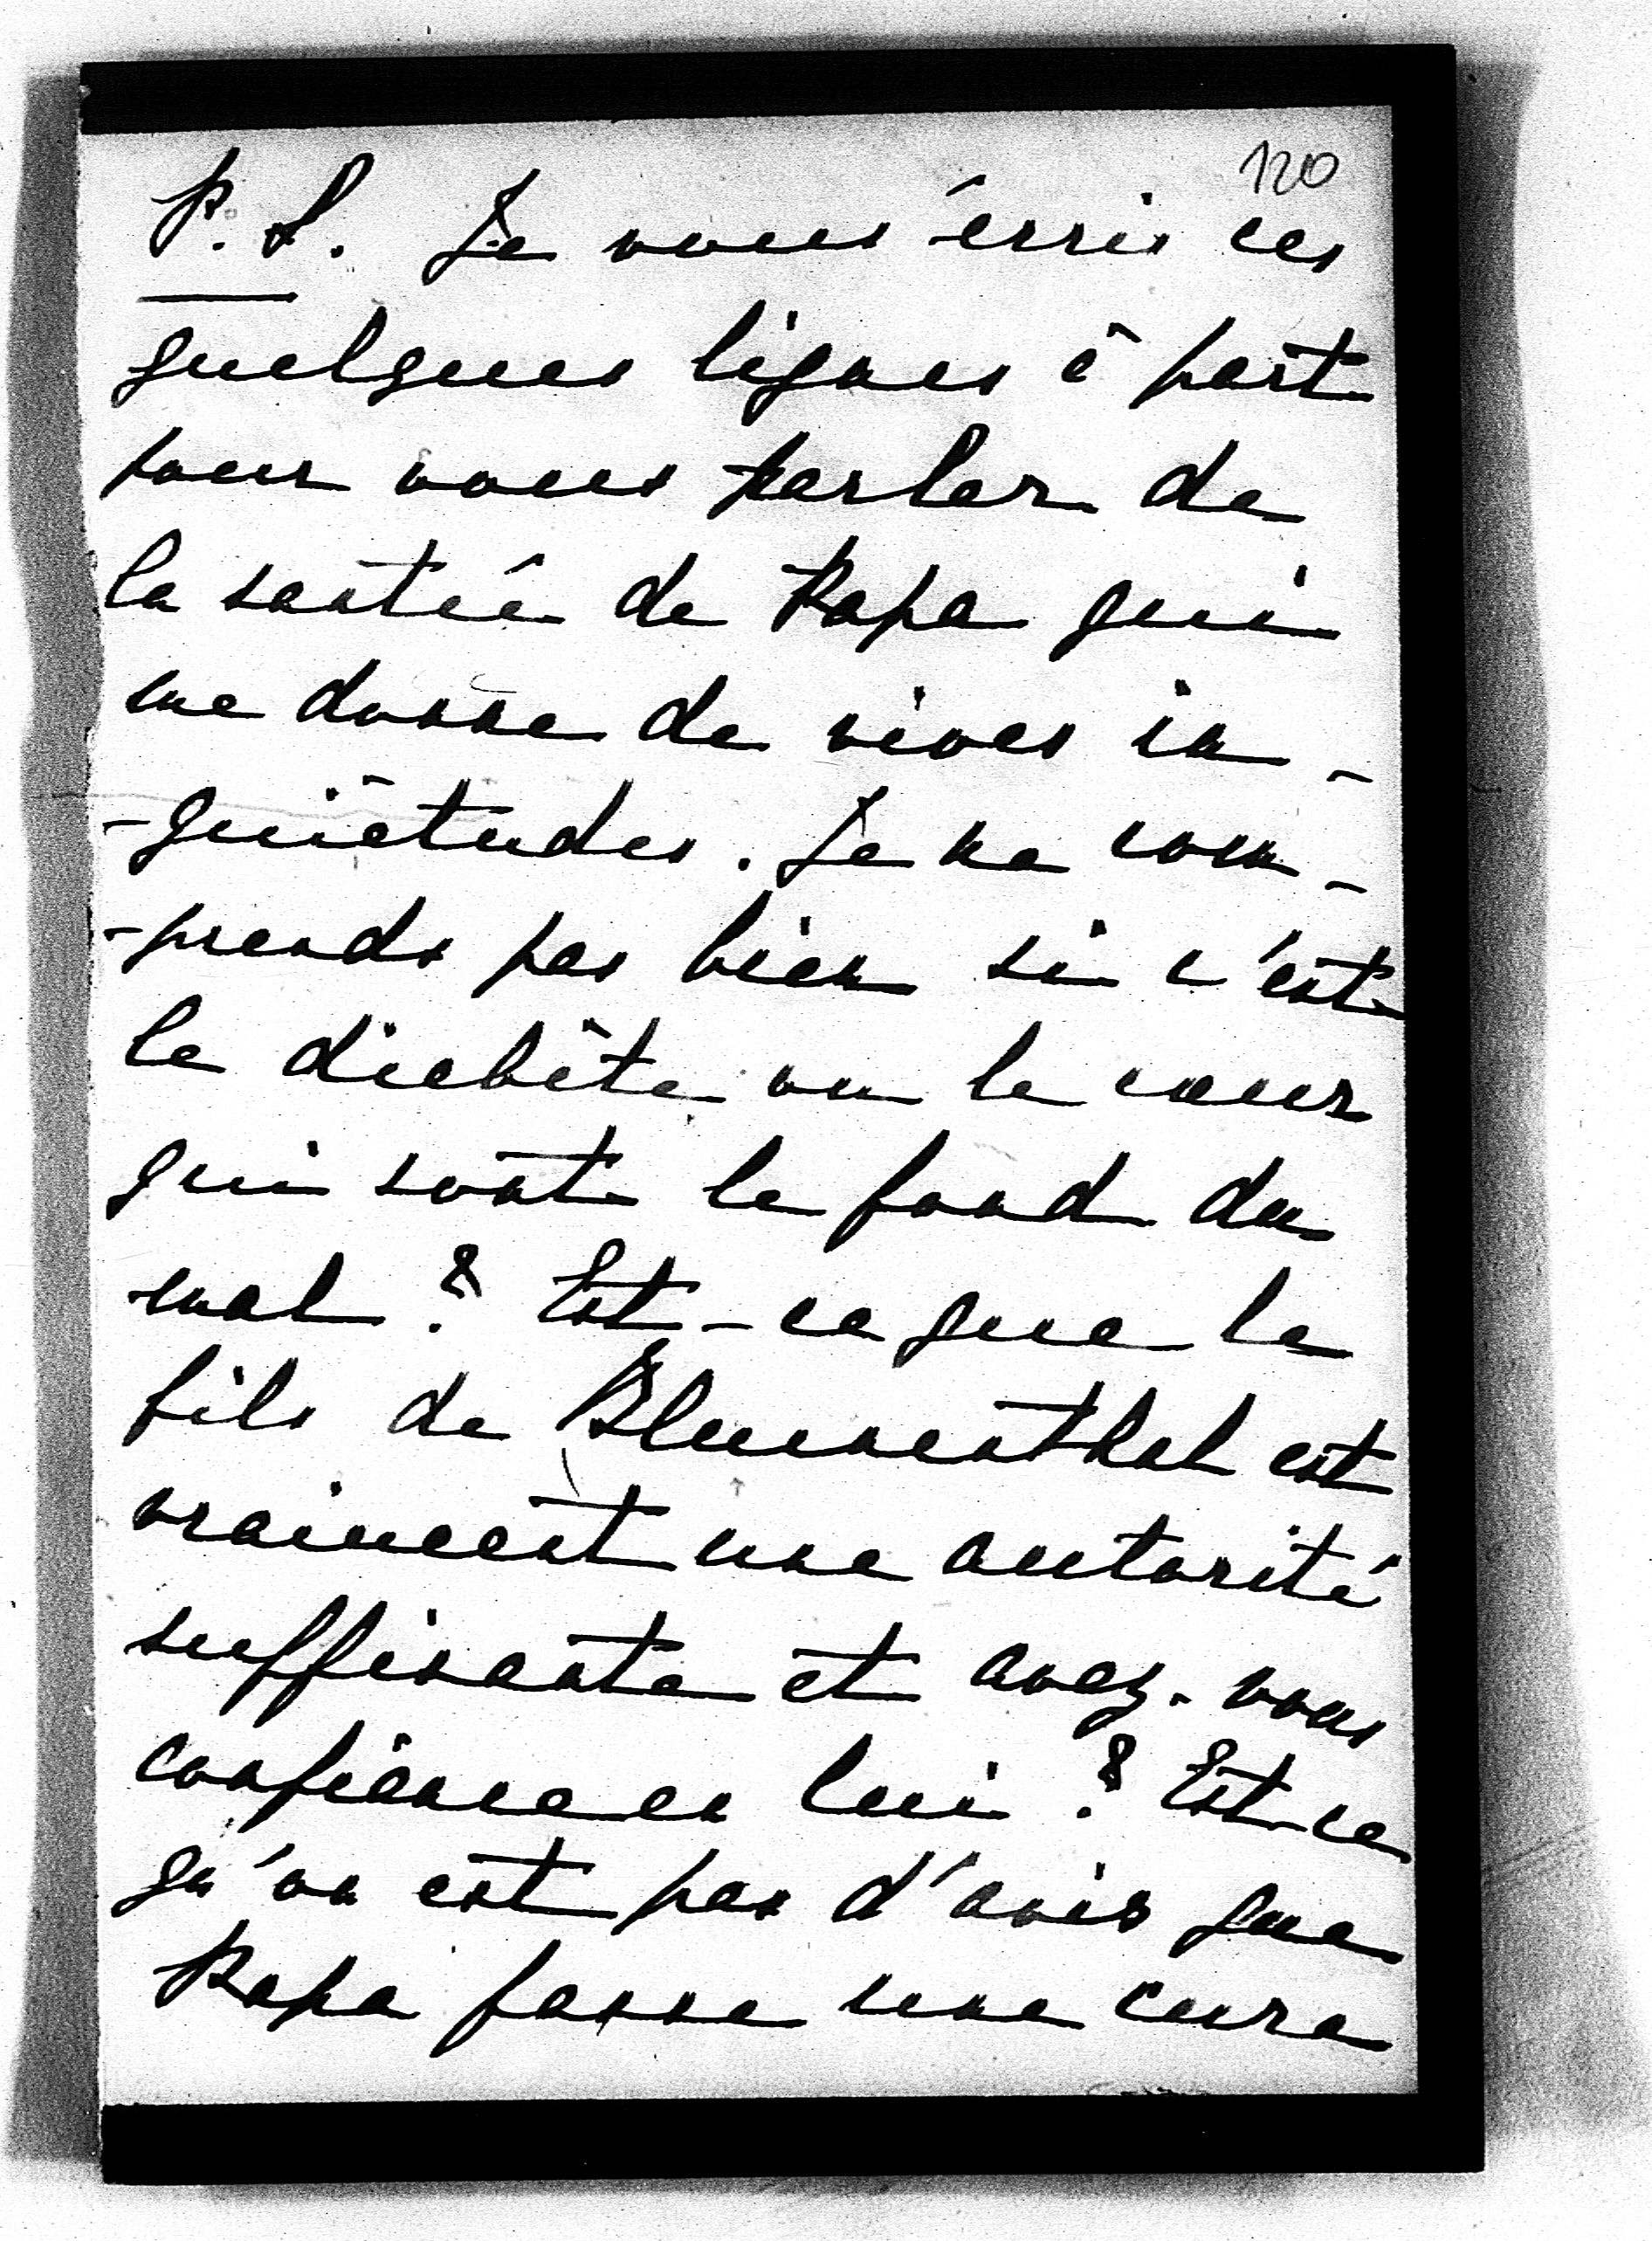 120
P.S. Je vous écris ces
quelques lignes à part
pour vous parler de
la santée de Papa qui
me donne de vives in-
-quiètudes. Je ne com-
-prends pas bien si c'est
le diabète ou le cœur
qui sont le fond du
mal ? Est-ce que le
fils de Blumenthal est
vraiment une autorité
suffisante et avez-vous
confiance en lui ? Est-ce
qu'on est pas d'avis que
Papa fasse une cure